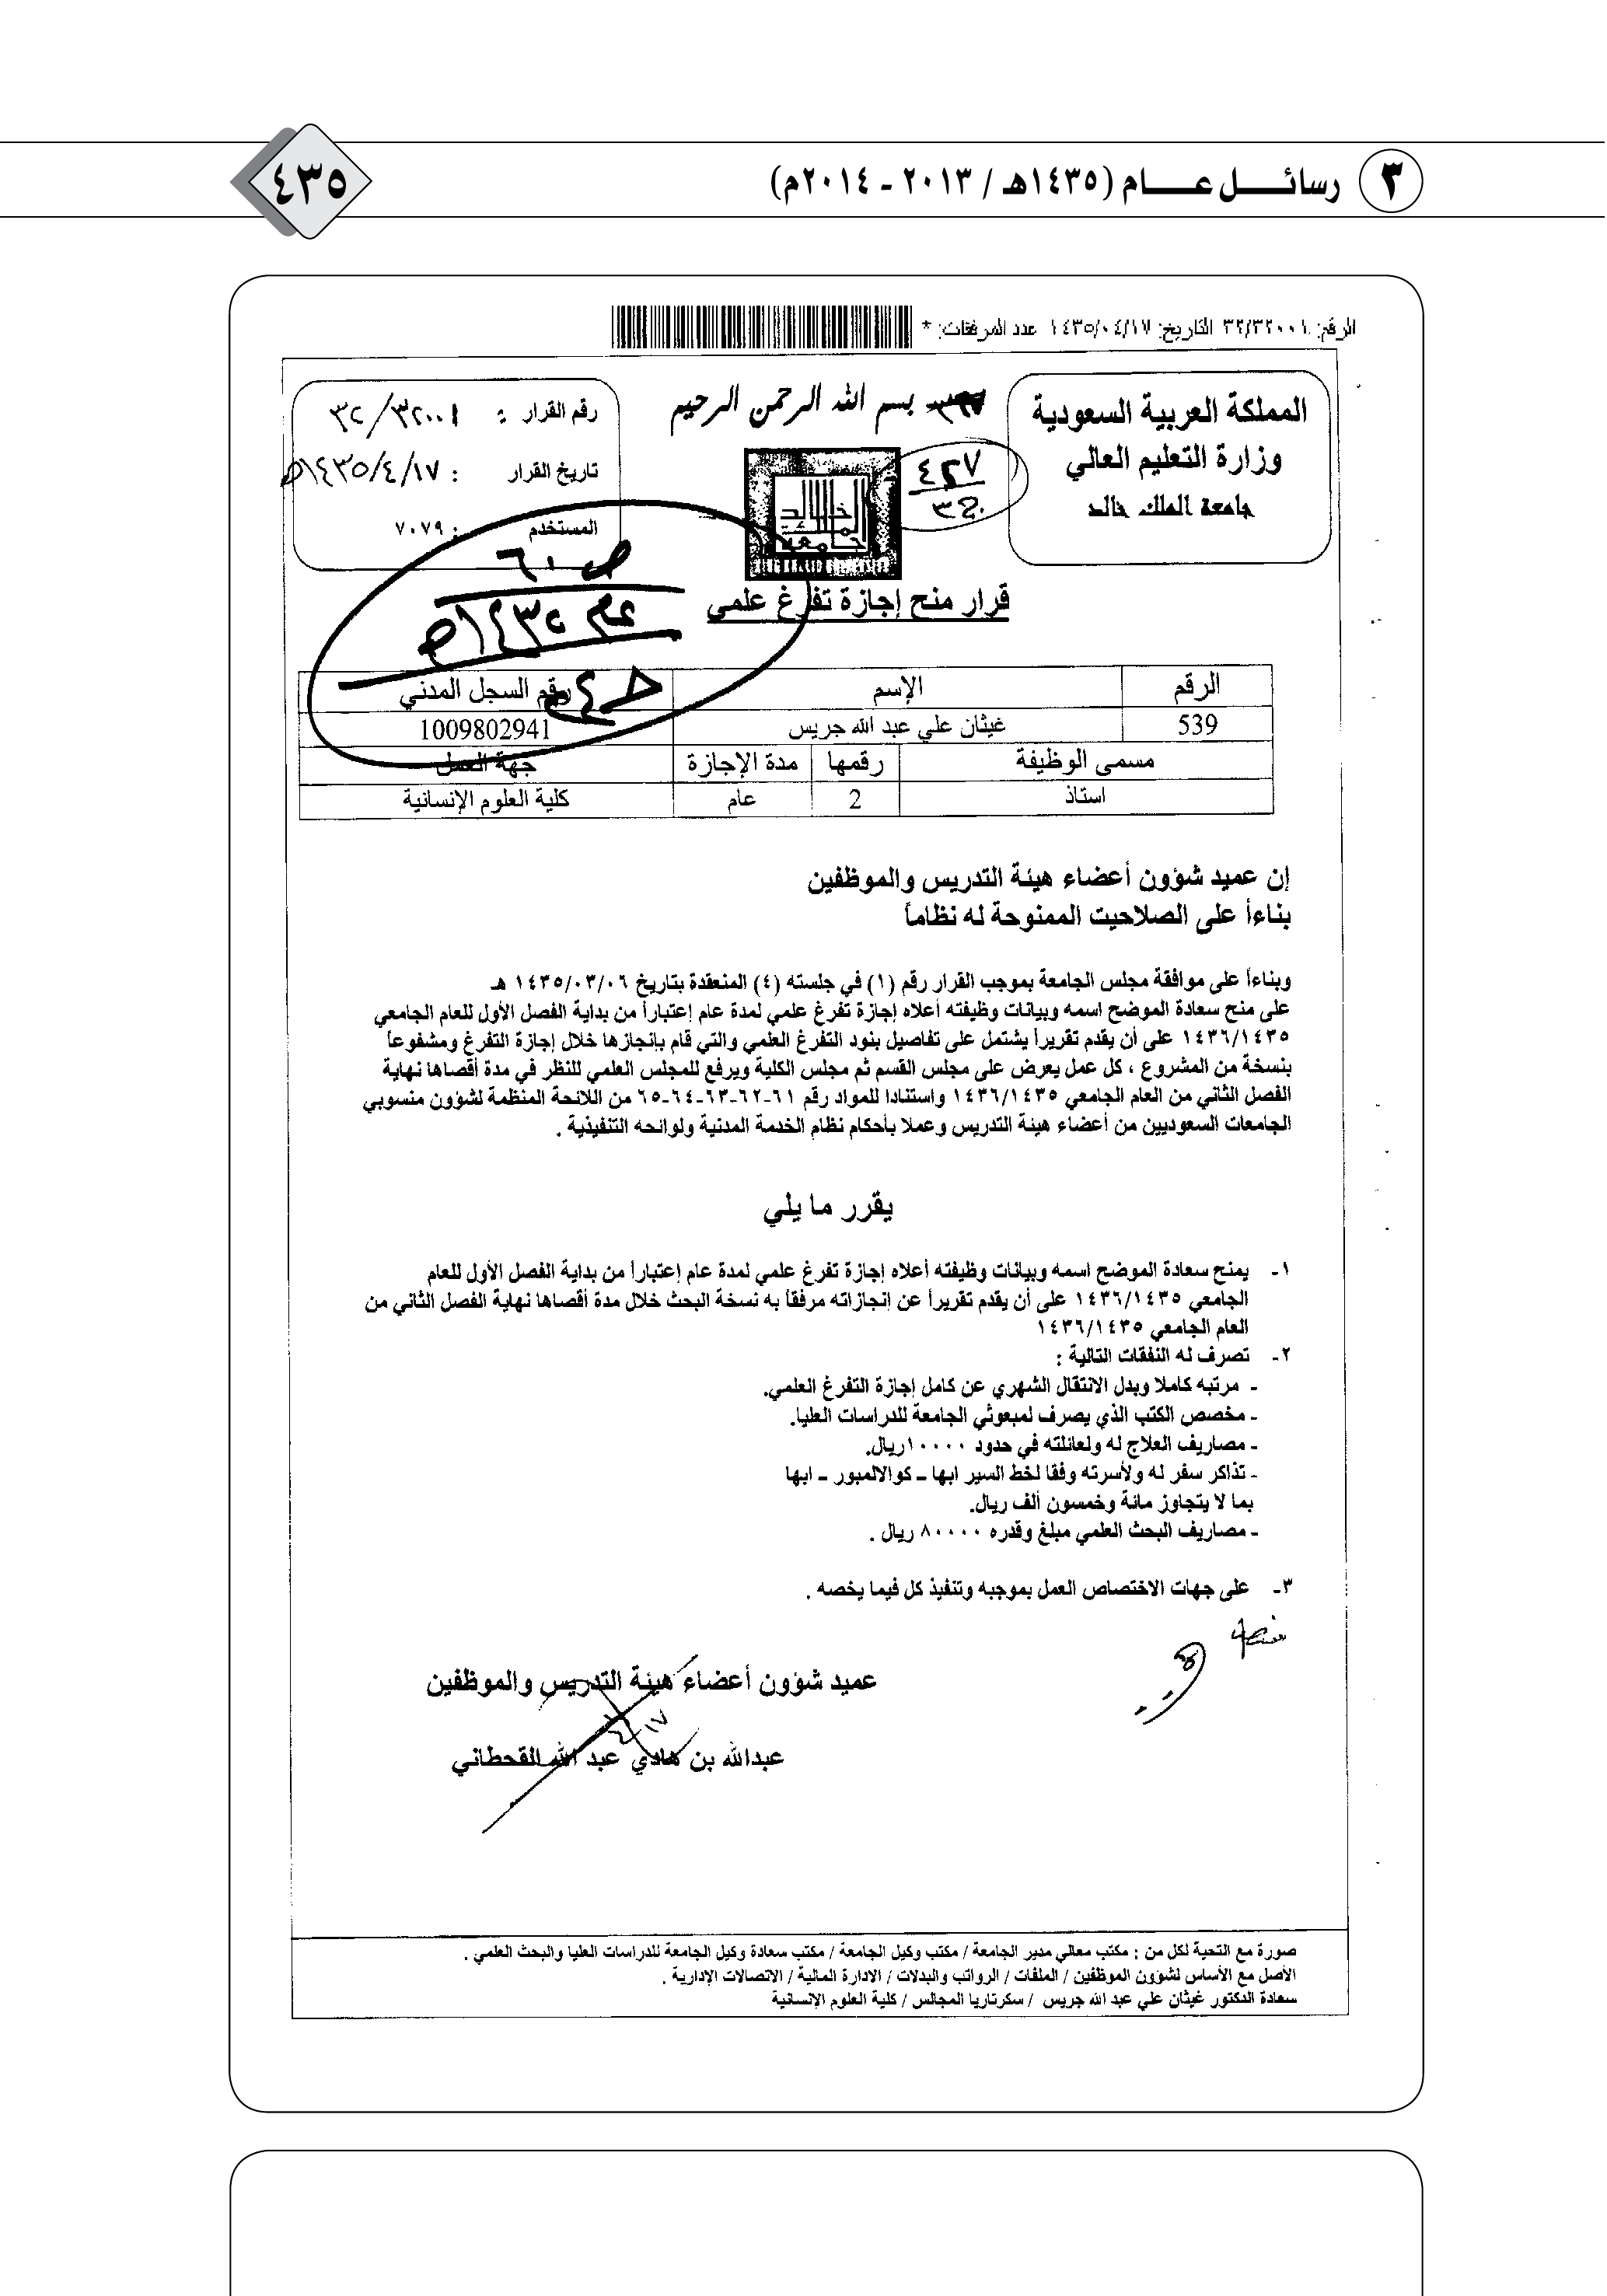 ٣ رسائل عام (١٤٣٥هـ / ٢٠١٣ - ٢٠١٤م)
٤٣٥
الرقم: ٣٢/٣٢٠٠١ التاريخ: ١٤٣٥/٠٤/١٧ عدد المرفقات: *
المملكة العربية السعودية
وزارة التعليم العالي
جامعة الملك خالد
بسم الله الرحمن الرحيم
٤٢٧
جامعة الملك خالد
رقم القرار : ٣٢/٣٢٠٠١
تاريخ القرار : ١٤٣٥/٤/١٧هـ
المستخدم : ٧٠٧٩
ص ٦٠
عام ١٤٣٥هـ
قرار منح إجازة تفرغ علمي
الرقم الإسم رقم السجل المدني
539 غيثان علي عبد الله جريس 1009802941
مسمى الوظيفة رقمها مدة الإجازة جهة العمل
استاذ 2 عام كلية العلوم الإنسانية
إن عميد شؤون أعضاء هيئة التدريس والموظفين
بناءأ على الصلاحيت الممنوحة له نظاماً
وبناءأ على موافقة مجلس الجامعة بموجب القرار رقم (١) في جلسته (٤) المنعقدة بتاريخ ١٤٣٥/٠٣/٠٦ هـ
على منح سعادة الموضح اسمه وبيانات وظيفته أعلاه إجازة تفرغ علمي لمدة عام إعتباراً من بداية الفصل الأول للعام الجامعي
١٤٣٦/١٤٣٥ على أن يقدم تقريراً يشتمل على تفاصيل بنود التفرغ العلمي والتي قام بإنجازها خلال إجازة التفرغ ومشفوعاً
بنسخة من المشروع ، كل عمل يعرض على مجلس القسم ثم مجلس الكلية ويرفع للمجلس العلمي للنظر في مدة أقصاها نهاية
الفصل الثاني من العام الجامعي ١٤٣٦/١٤٣٥ واستنادا للمواد رقم ٦١-٦٢-٦٣-٦٤-٦٥ من اللائحة المنظمة لشؤون منسوبي
الجامعات السعوديين من أعضاء هيئة التدريس وعملا بأحكام نظام الخدمة المدنية ولوائحه التنفيذية .
يقرر ما يلي
١- يمنح سعادة الموضح اسمه وبيانات وظيفته أعلاه إجازة تفرغ علمي لمدة عام إعتباراً من بداية الفصل الأول للعام
الجامعي ١٤٣٦/١٤٣٥ على أن يقدم تقريراً عن إنجازاته مرفقاً به نسخة البحث خلال مدة أقصاها نهاية الفصل الثاني من
العام الجامعي ١٤٣٦/١٤٣٥
٢- تصرف له النفقات التالية :
- مرتبه كاملا وبدل الانتقال الشهري عن كامل إجازة التفرغ العلمي.
- مخصص الكتب الذي يصرف لمبعوثي الجامعة للدراسات العليا.
- مصاريف العلاج له ولعائلته في حدود ١٠٠٠٠ريال.
- تذاكر سفر له ولأسرته وفقا لخط السير ابها – كوالالمبور – ابها
بما لا يتجاوز مائة وخمسون ألف ريال.
- مصاريف البحث العلمي مبلغ وقدره ٨٠٠٠٠ ريال .
٣- على جهات الاختصاص العمل بموجبه وتنفيذ كل فيما يخصه .
عميد شؤون أعضاء هيئة التدريس والموظفين
عبدالله بن هادي عبد الله القحطاني
صورة مع التحية لكل من : مكتب معالي مدير الجامعة / مكتب وكيل الجامعة / مكتب سعادة وكيل الجامعة للدراسات العليا والبحث العلمي .
الأصل مع الأساس لشؤون الموظفين / الملفات / الرواتب والبدلات / الادارة المالية / الاتصالات الإدارية .
سعادة الدكتور غيثان علي عبد الله جريس / سكرتاريا المجالس / كلية العلوم الإنسانية